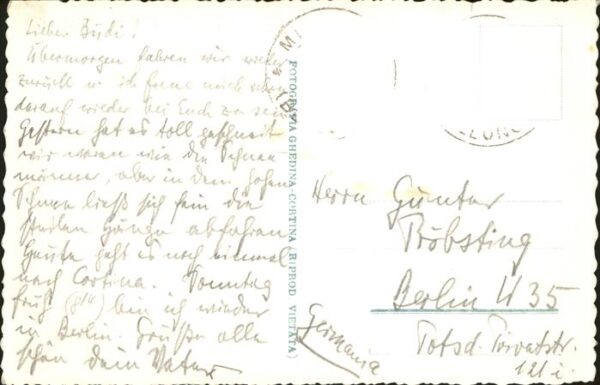 Lieber Budi!
Übermorgen fahren wir wieder
zurück u. ich freue mich schon
darauf wieder bei Euch zu sein
Gestern hat es toll geschneit
wir waren wie die Schnee
männer, aber in dem hohen
Schnee ließ sich fein die
steilen Hänge abfahren
Heute geht es noch einmal
nach Cortina. Sonntag
früh (8¹⁴) bin ich wieder
in Berlin. Grüße alle
schön dein Vater
FOTOGRAFIA GHEDINA - CORTINA (RIPROD. VIETATA)
Herrn Günter
Pröbsting
Berlin W 35
Potsd. Privatstr.
121 i.
Germania